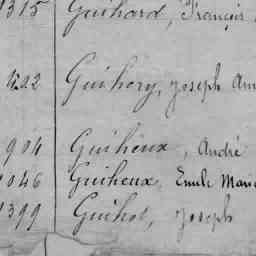 1315 Guihard, François
1202 Guihéry, Joseph
904 Guiheux, André
1046 Guiheux, Emile Marie
1399 Guihot, Joseph